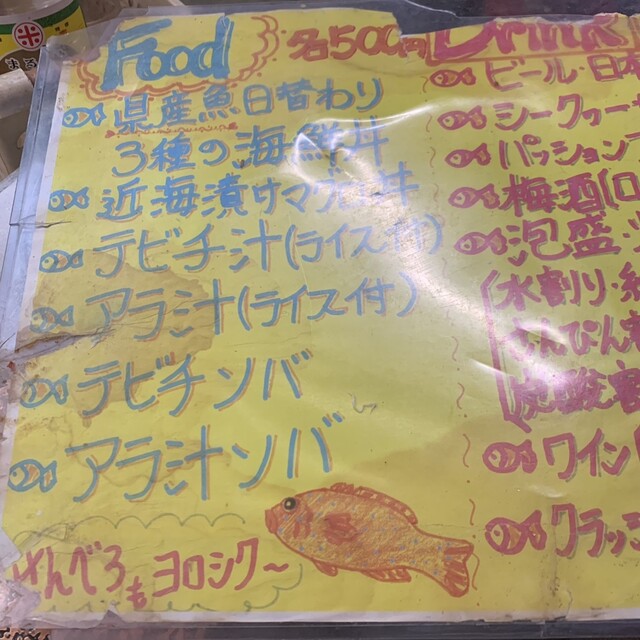 Food 各500円
県産魚日替わり
3種の海鮮丼
近海漬けマグロ丼
テビチ汁(ライス付)
アラ汁(ライス付)
テビチソバ
アラ汁ソバ
せんべろもヨロシク〜
Drink
ビール・日本
シークヮー
パッション
梅酒(ロ
泡盛
(水割り・
さんぴん
炭酸割
ワイン
クラッ
米